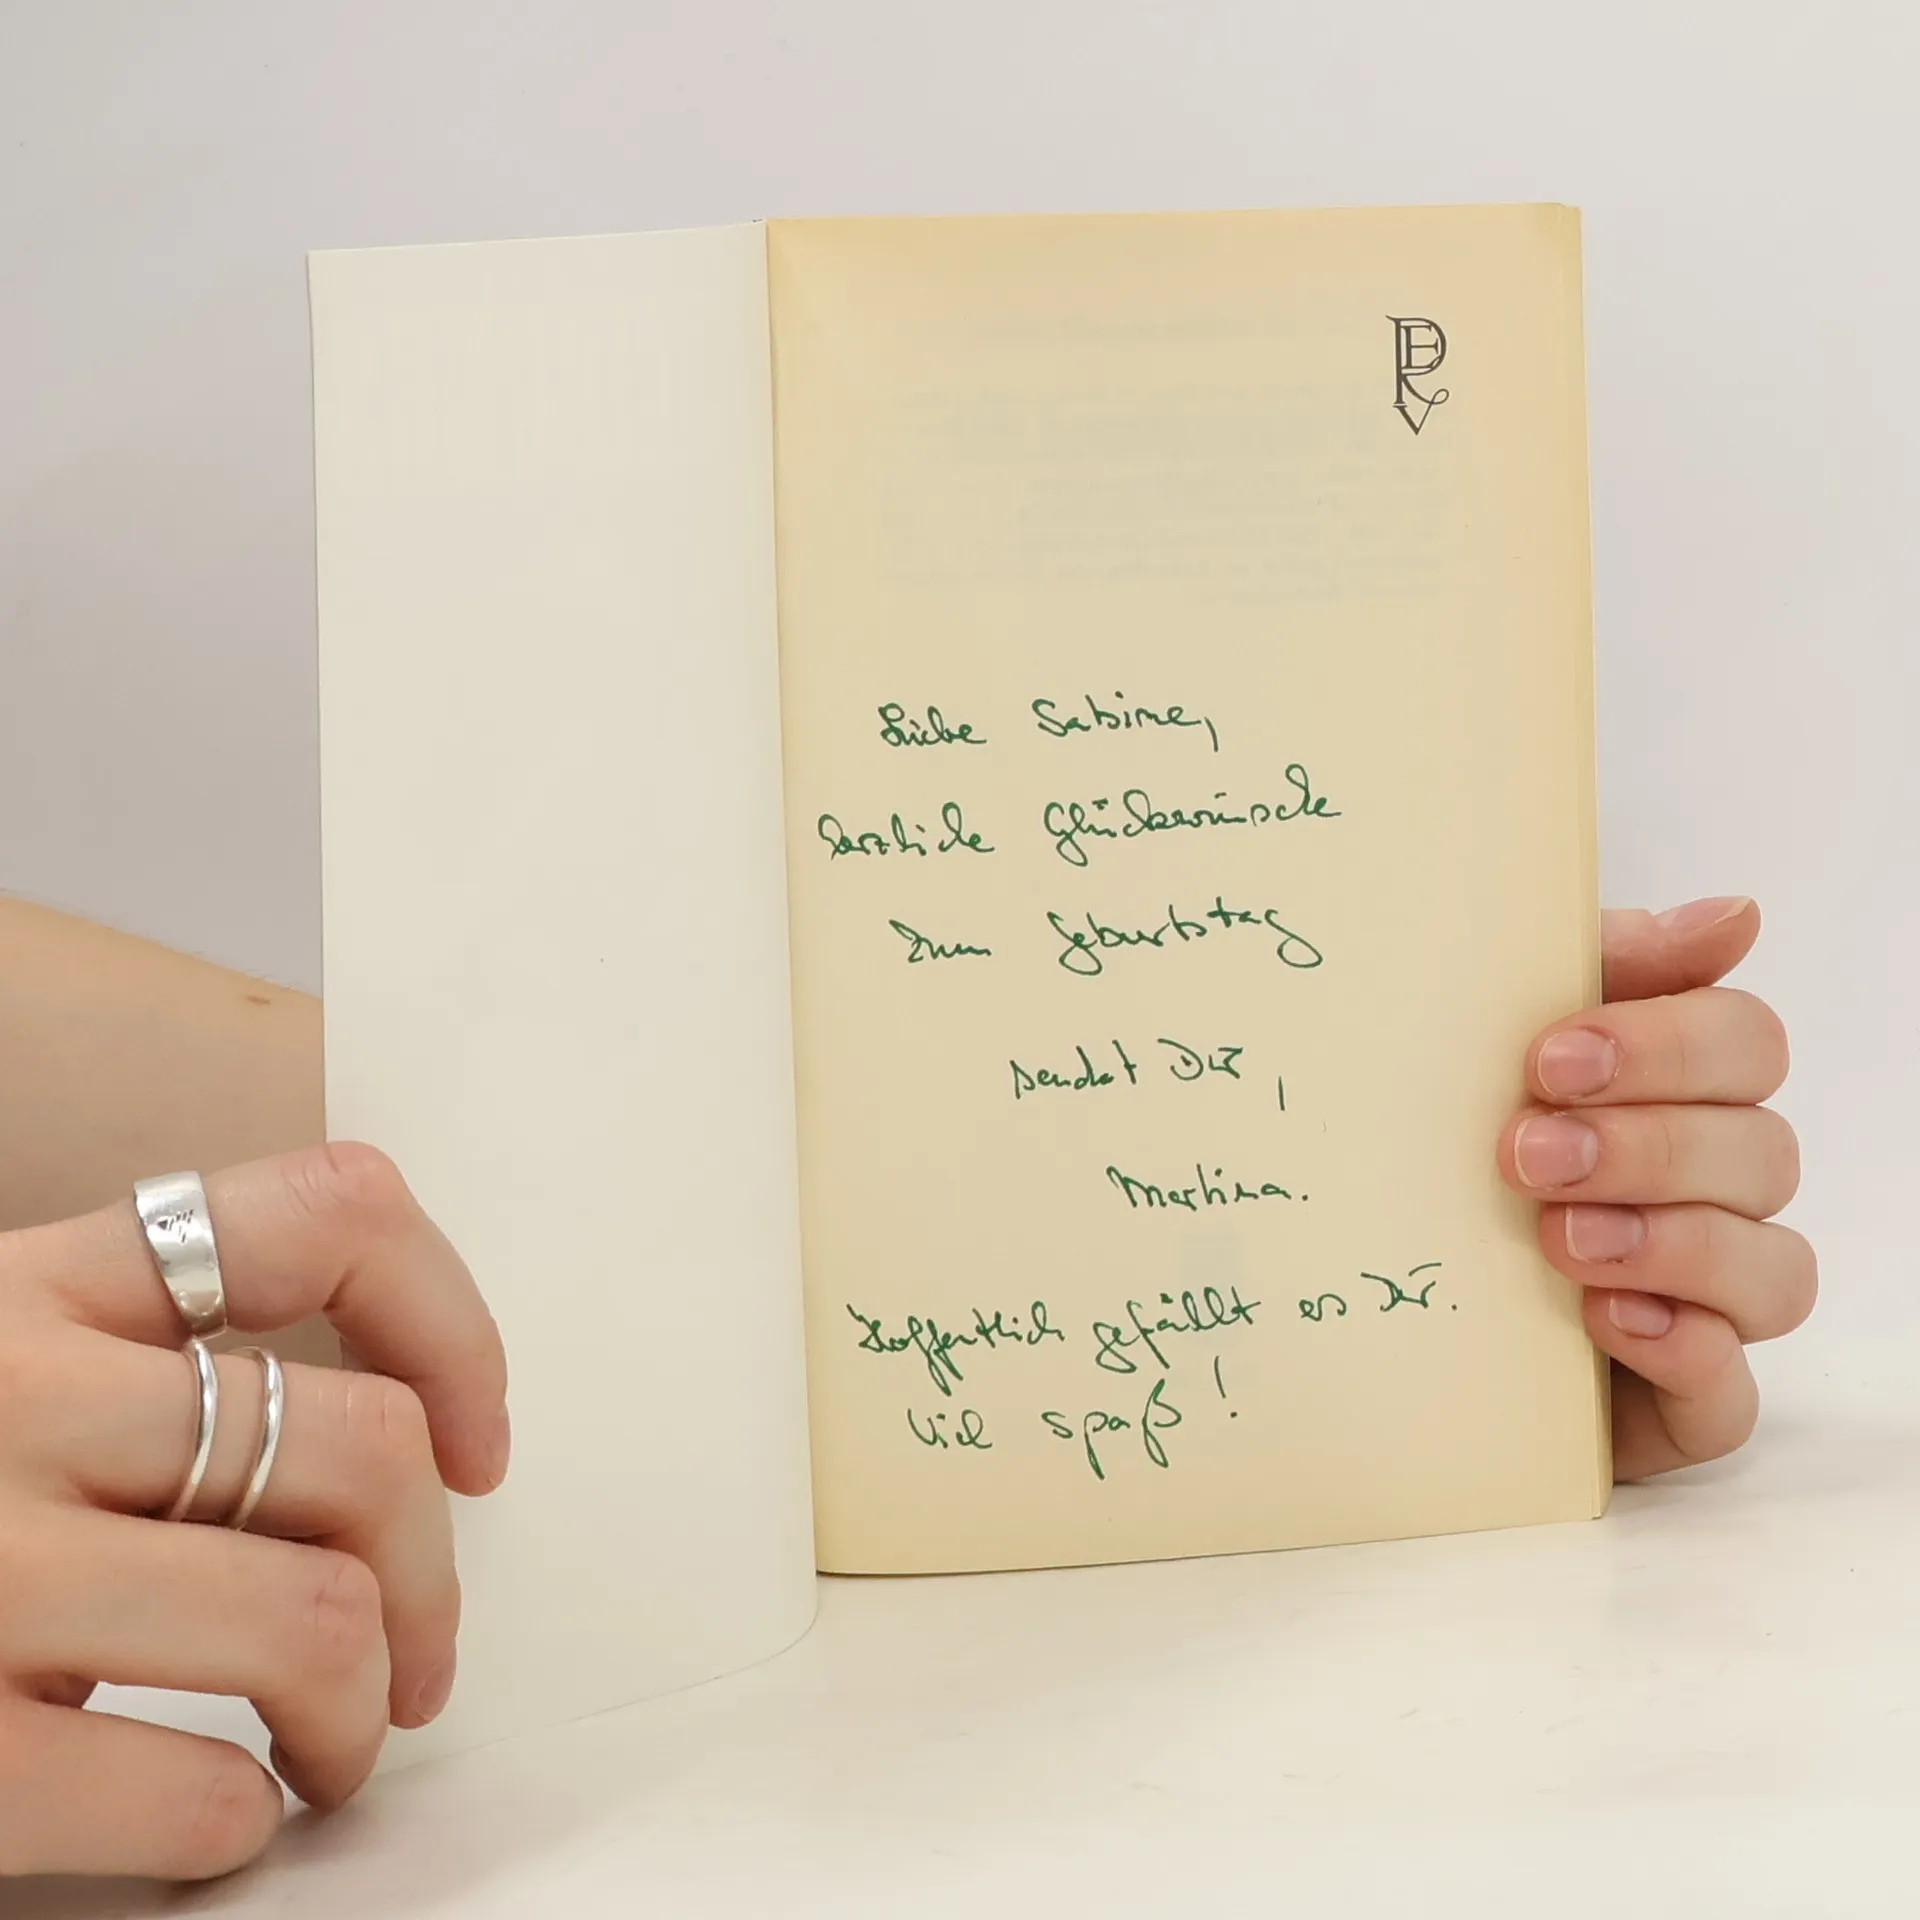 PEV
Liebe Sabine,
herzliche Glückwünsche
zum Geburtstag
sendet Dir,
Martina.
Hoffentlich gefällt es Dir.
Viel Spaß!